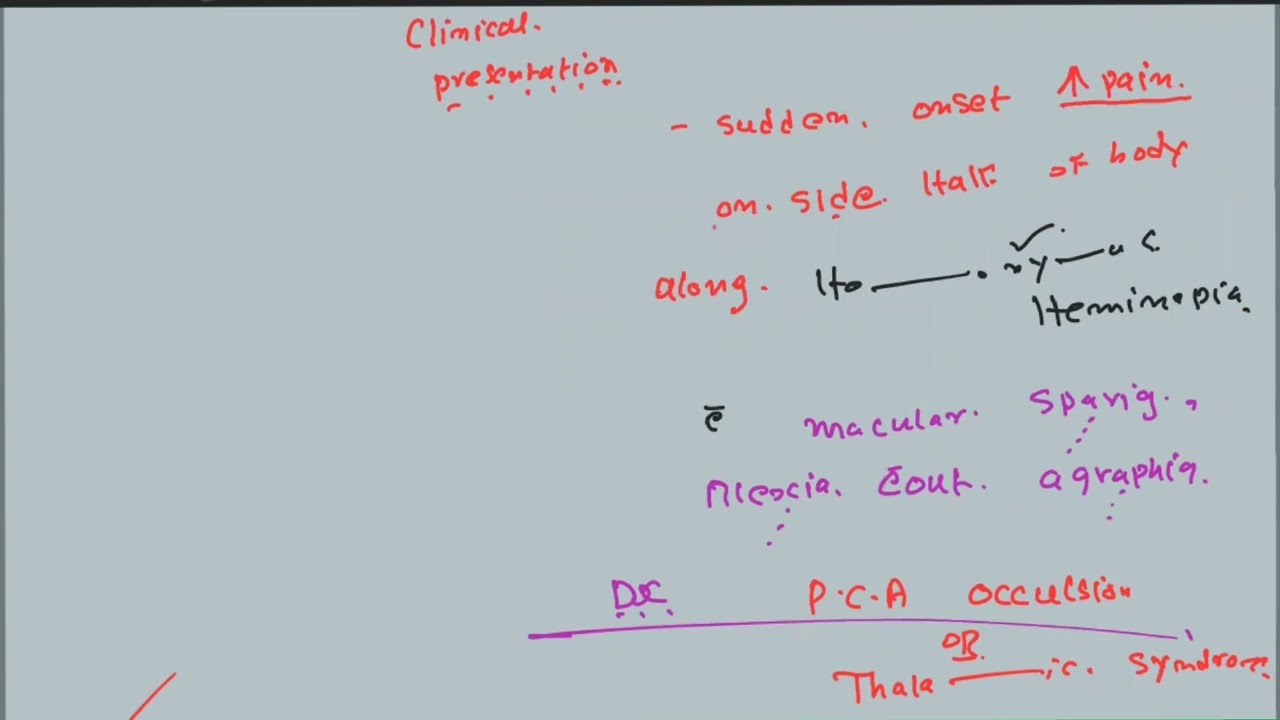 Clinical.
presentation
- sudden. onset ↑ pain.
on. side. Half of body
along. Ho——.ny—us
Heminopia.
c̄ macular. sparig.,
Alexia. c̄out. agraphia.
DX P.C.A occulsion
OR.
Thala——ic. syndrome.